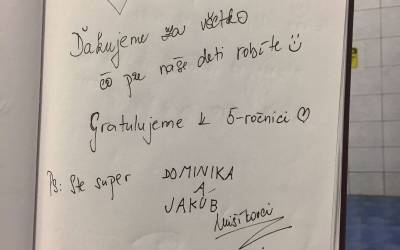 Ďakujeme za všetko
čo pre naše deti robíte
Gratulujeme k 5-ročnici
Ps: Ste super DOMINIKA
A
JAKUB